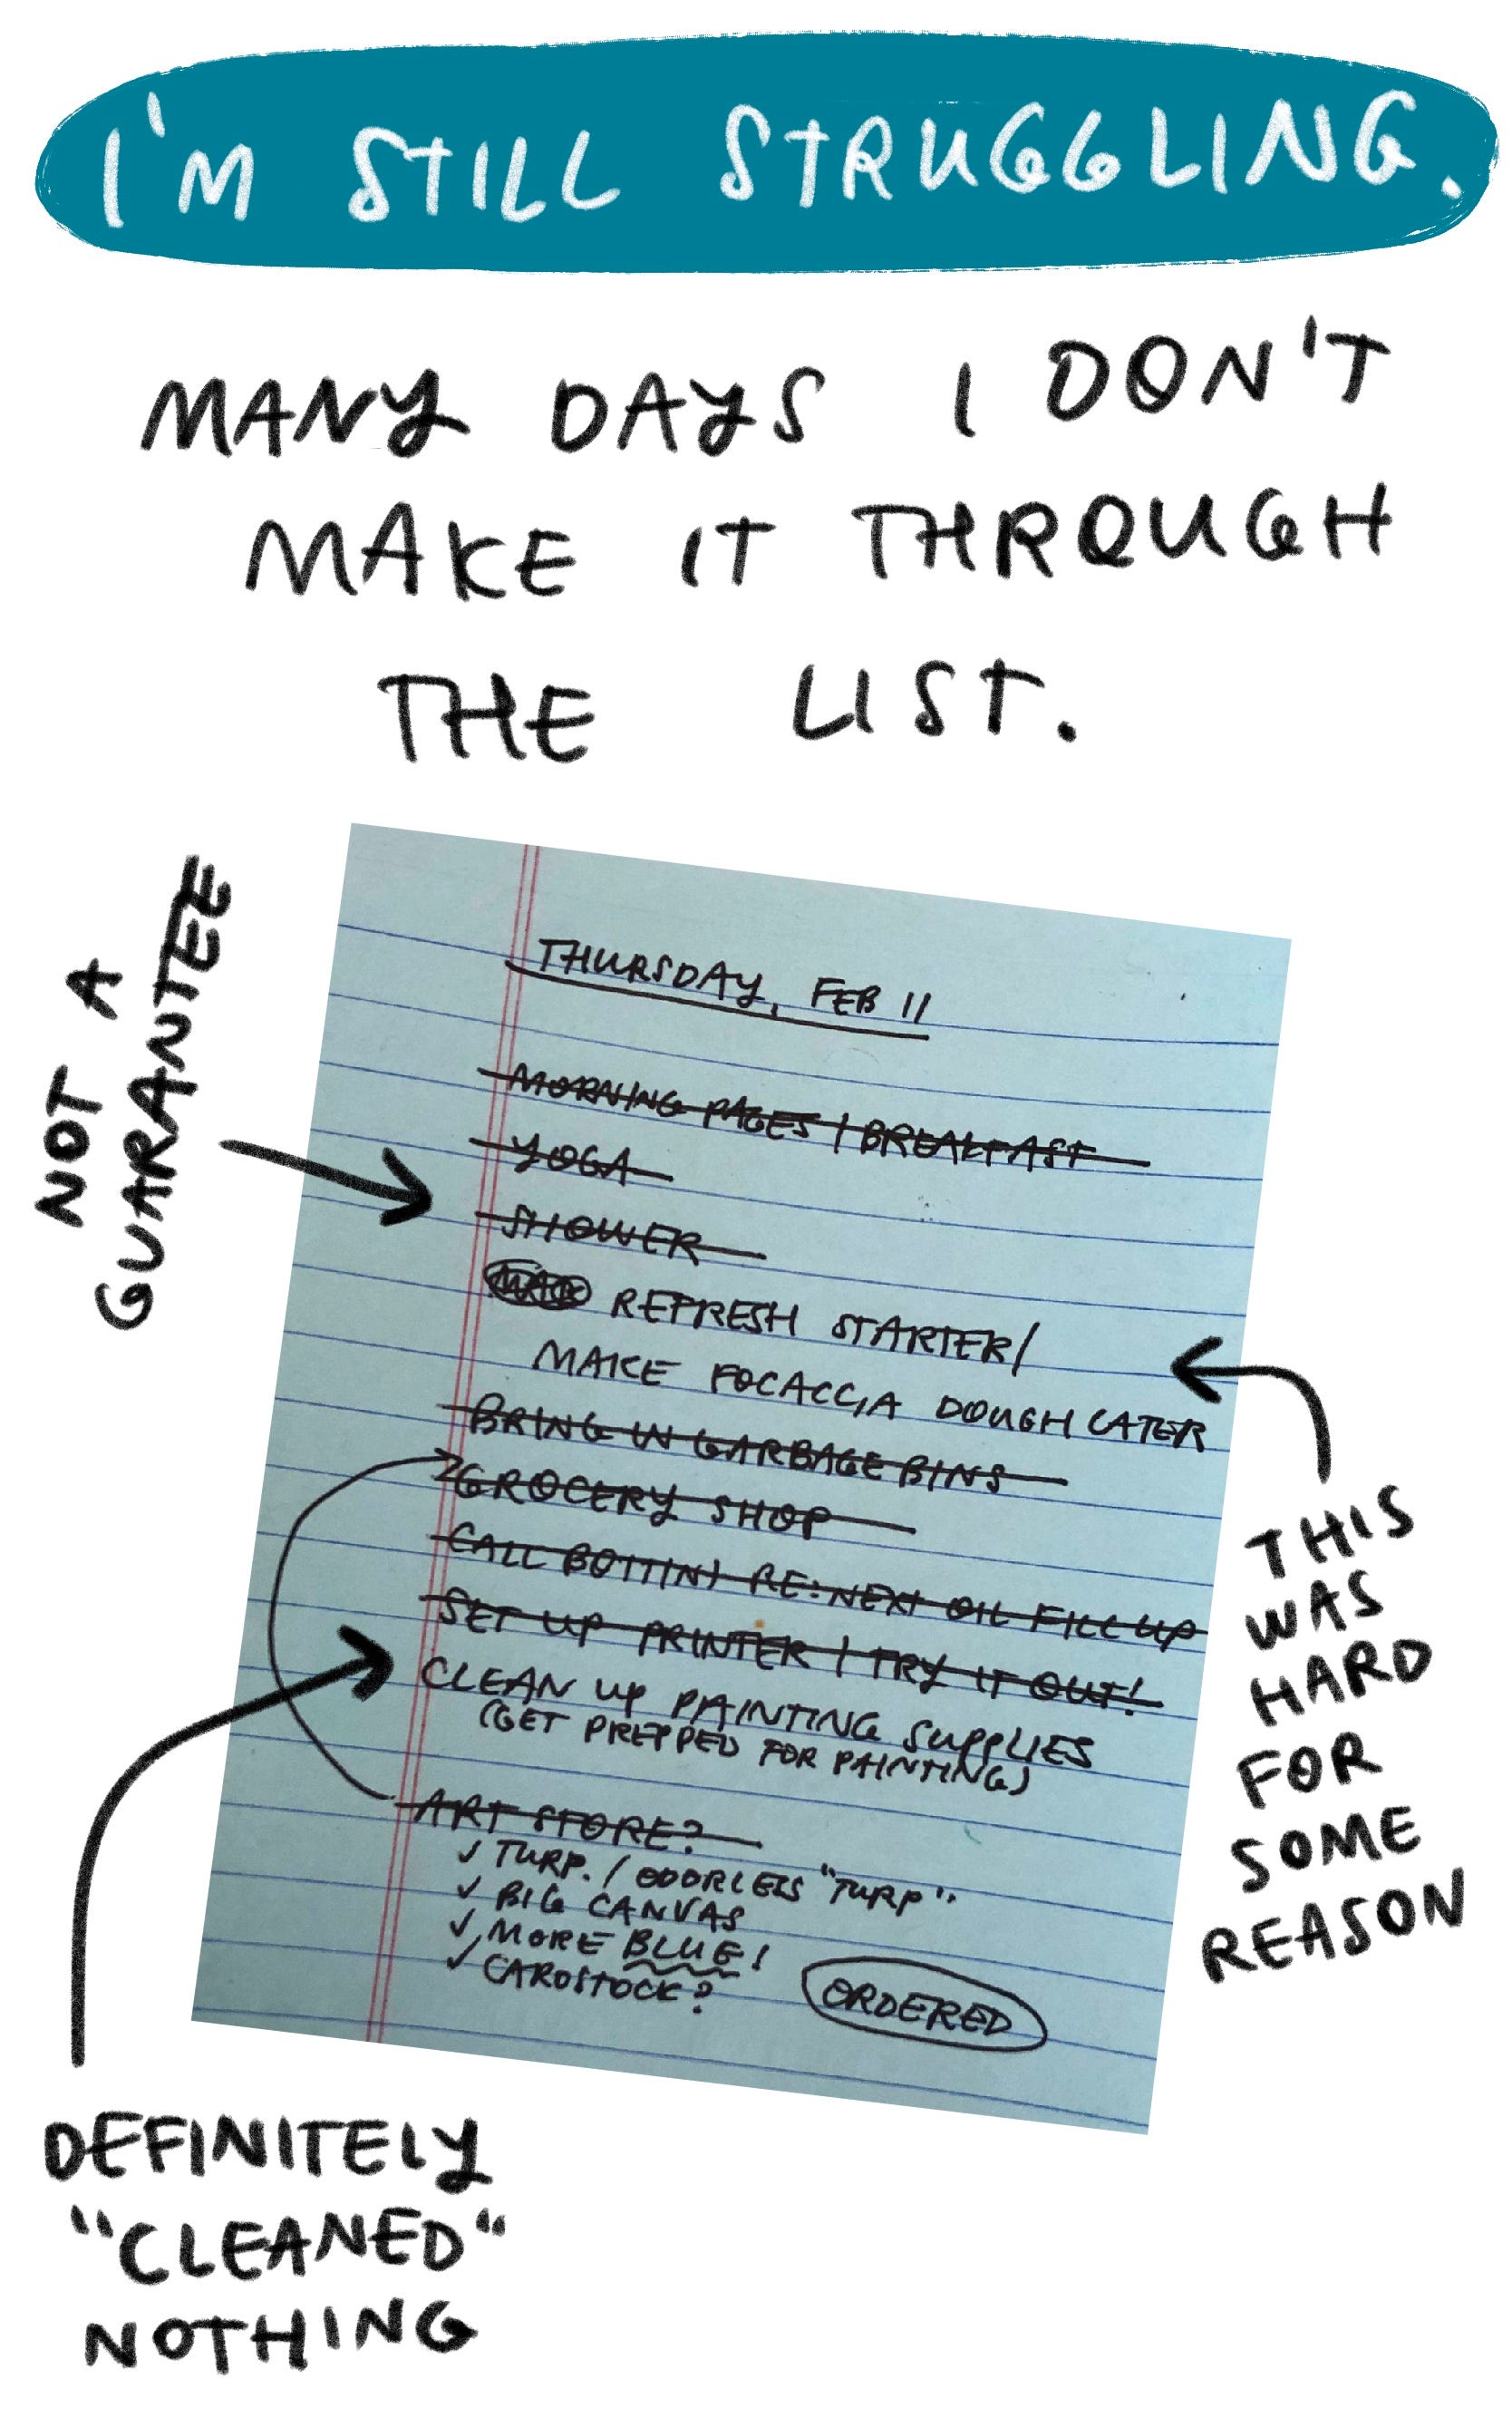 I'M STILL STRUGGLING.
MANY DAYS I DON'T
MAKE IT THROUGH
THE LIST.
NOT A
GUARANTEE
THURSDAY, FEB 11
MORNING PAGES / BREAKFAST
YOGA
SHOWER
REFRESH STARTER/
MAKE FOCACCIA DOUGH LATER
BRING IN GARBAGE BINS
GROCERY SHOP
CALL BOTTINI RE: NEXT OIL FILL UP
SET UP PRINTER / TRY IT OUT!
CLEAN UP PAINTING SUPPLIES
(GET PREPPED FOR PAINTING)
ART STORE?
✓ TURP. / ODORLESS "TURP".
✓ BIG CANVAS
✓ MORE BLUE!
✓ CARDSTOCK?
ORDERED
THIS
WAS
HARD
FOR
SOME
REASON
DEFINITELY
"CLEANED"
NOTHING